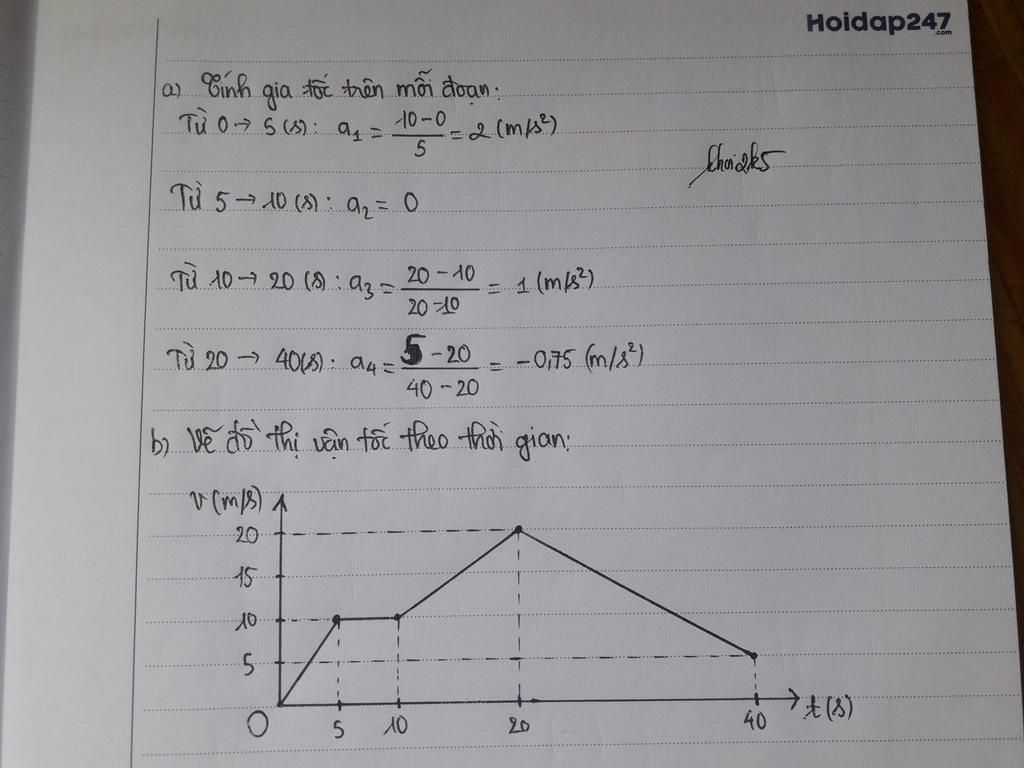 Hoidap247
.com
a) Tính gia tốc trên mỗi đoạn:
Từ 0 → 5 (s): a₁ = (10-0)/5 = 2 (m/s²)
khai2k5
Từ 5 → 10 (s): a₂ = 0
Từ 10 → 20 (s): a₃ = (20-10)/(20-10) = 1 (m/s²)
Từ 20 → 40(s): a₄ = (5-20)/(40-20) = -0,75 (m/s²)
b) Vẽ đồ thị vận tốc theo thời gian:
v (m/s)
20
15
10
5
O 5 10 20 40 t (s)